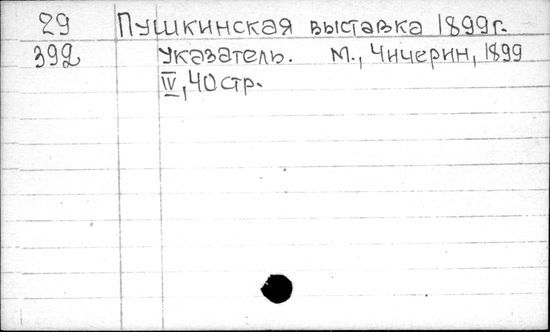 29 Пушкинская выставка 1899г.
392 Указатель. М., Чичерин, 1899
IV, 40 стр.